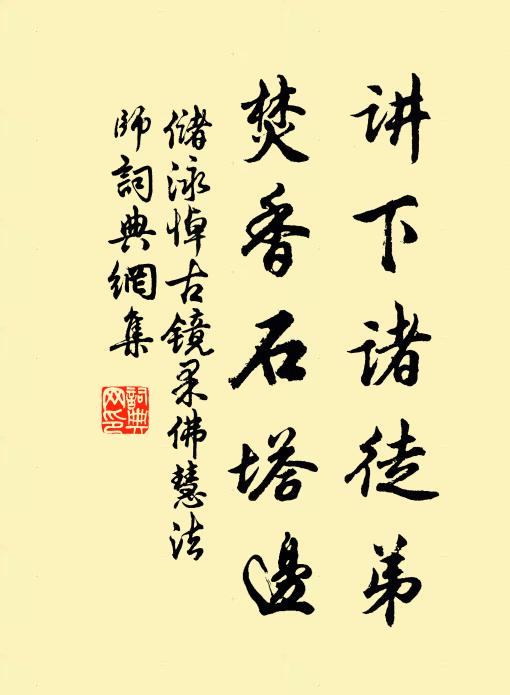 讲下诸徒弟
焚香石塔邊
储泳悼古镜果佛慧法
师詞典網集
詞典
网印